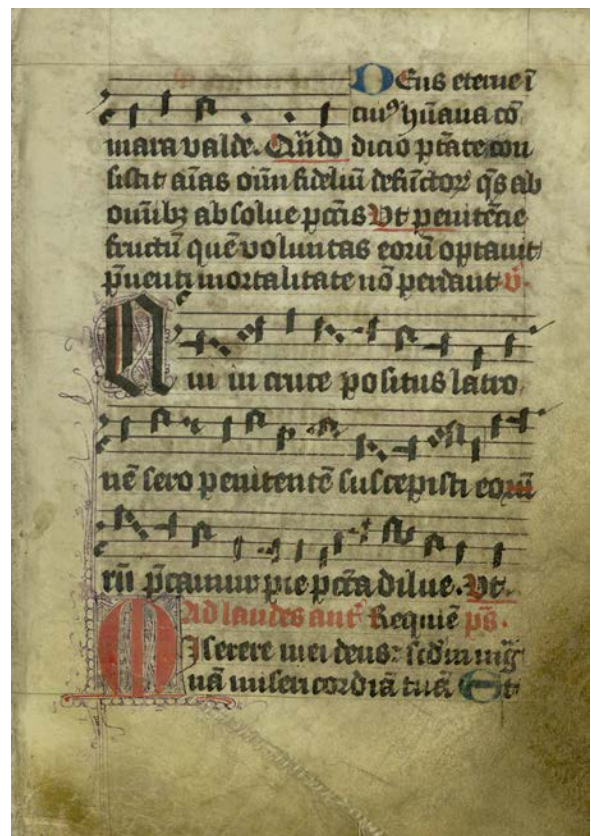 Deus eterne ī
cuiꝰ hūana cō
mara valde. Qūdo dicio ptāte con
sistit aīas oīm fideliū defūctoꝝ qs̄ ab
oīnibꝫ absolue pctīs Vt penitēcie
fructū quē voluntas eorū optauit
p̄uenti mortalitate nō perdant v̄.
Qui in cruce positus latro
nē sero penitentē suscepisti eorū
rū p̄camur pie pctā dilue. Vt.
Ad laudes ant̄ Requiē ps̄.
Miserere mei deus: scdm mag
nā misericordiā tuā Et